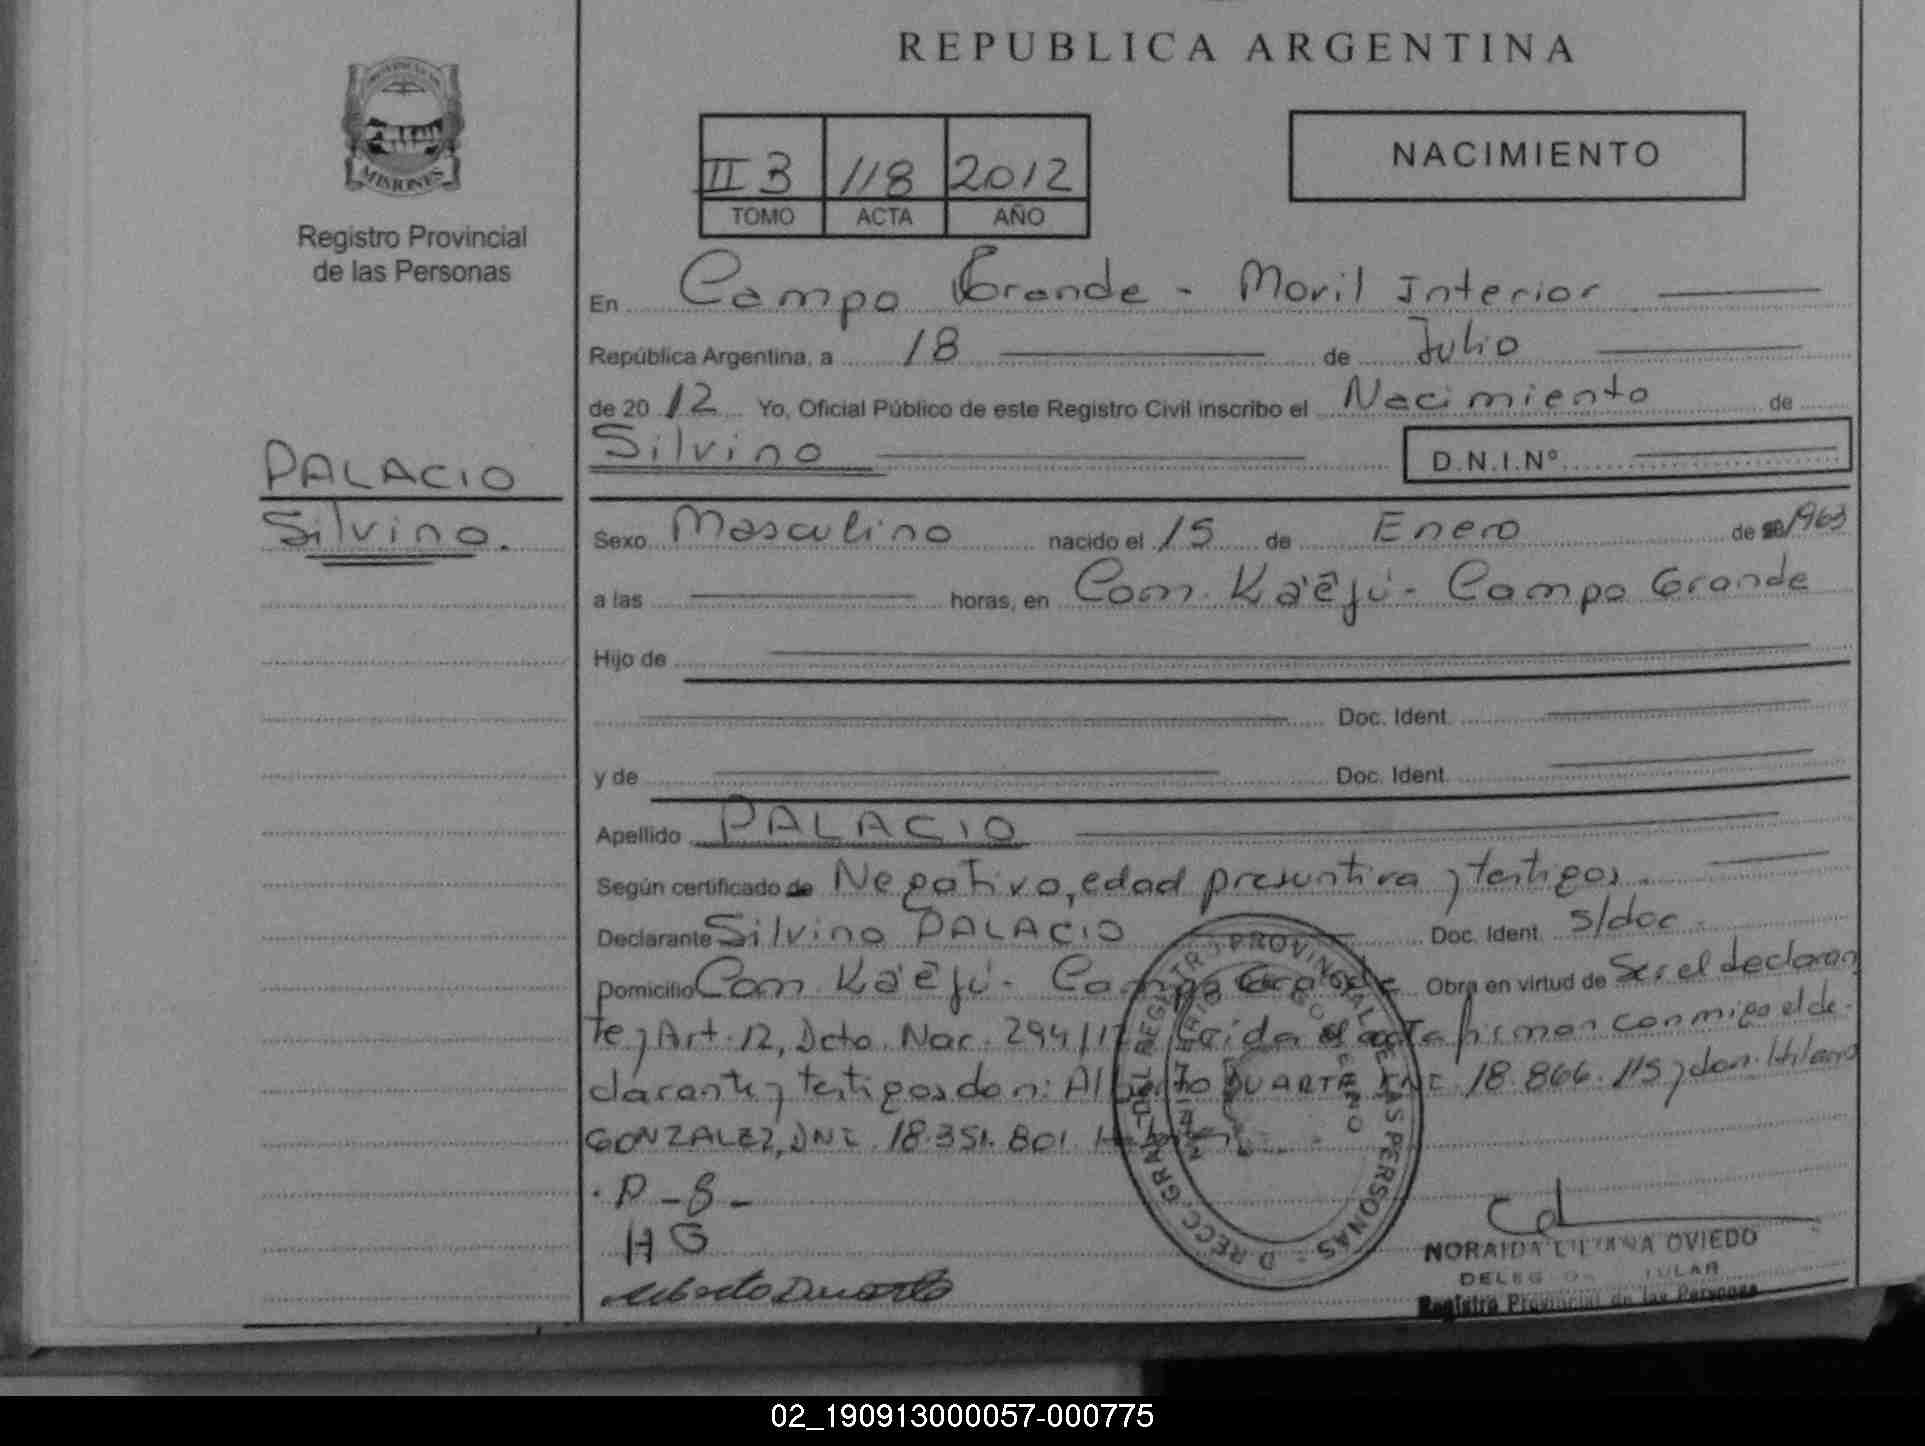 REPUBLICA ARGENTINA
PROVINCIA DE
MISIONES
Registro Provincial
de las Personas
II 3 118 2012
TOMO ACTA AÑO
NACIMIENTO
En Campo Grande - Movil Interior
República Argentina, a 18 de Julio
de 2012 Yo, Oficial Público de este Registro Civil inscribo el Nacimiento de
Silvino D.N.I.Nº
PALACIO
Silvino.
Sexo Masculino nacido el 15 de Enero de 1963
a las horas, en Com. Ka'ẽjú - Campo Grande
Hijo de
Doc. Ident.
y de Doc. Ident.
Apellido PALACIO
Según certificado de Negativo, edad presuntiva y testigos.
Declarante Silvino PALACIO Doc. Ident. s/doc.
Domicilio Com. Ka'ẽjú - Campo Grande Obra en virtud de Ser el declaran
te y Art. 12, Dcto. Nac. 294/12 Leida el acta firman conmigo el de-
clarante y testigos don: Alberto DUARTE DNI 18.866.115 y don Hilario
GONZALEZ, DNI. 18.351.801.
P - S -
H G
Alberto Duarte
NORAIDA LILIANA OVIEDO
Registro Provincial de las Personas
02_190913000057-000775